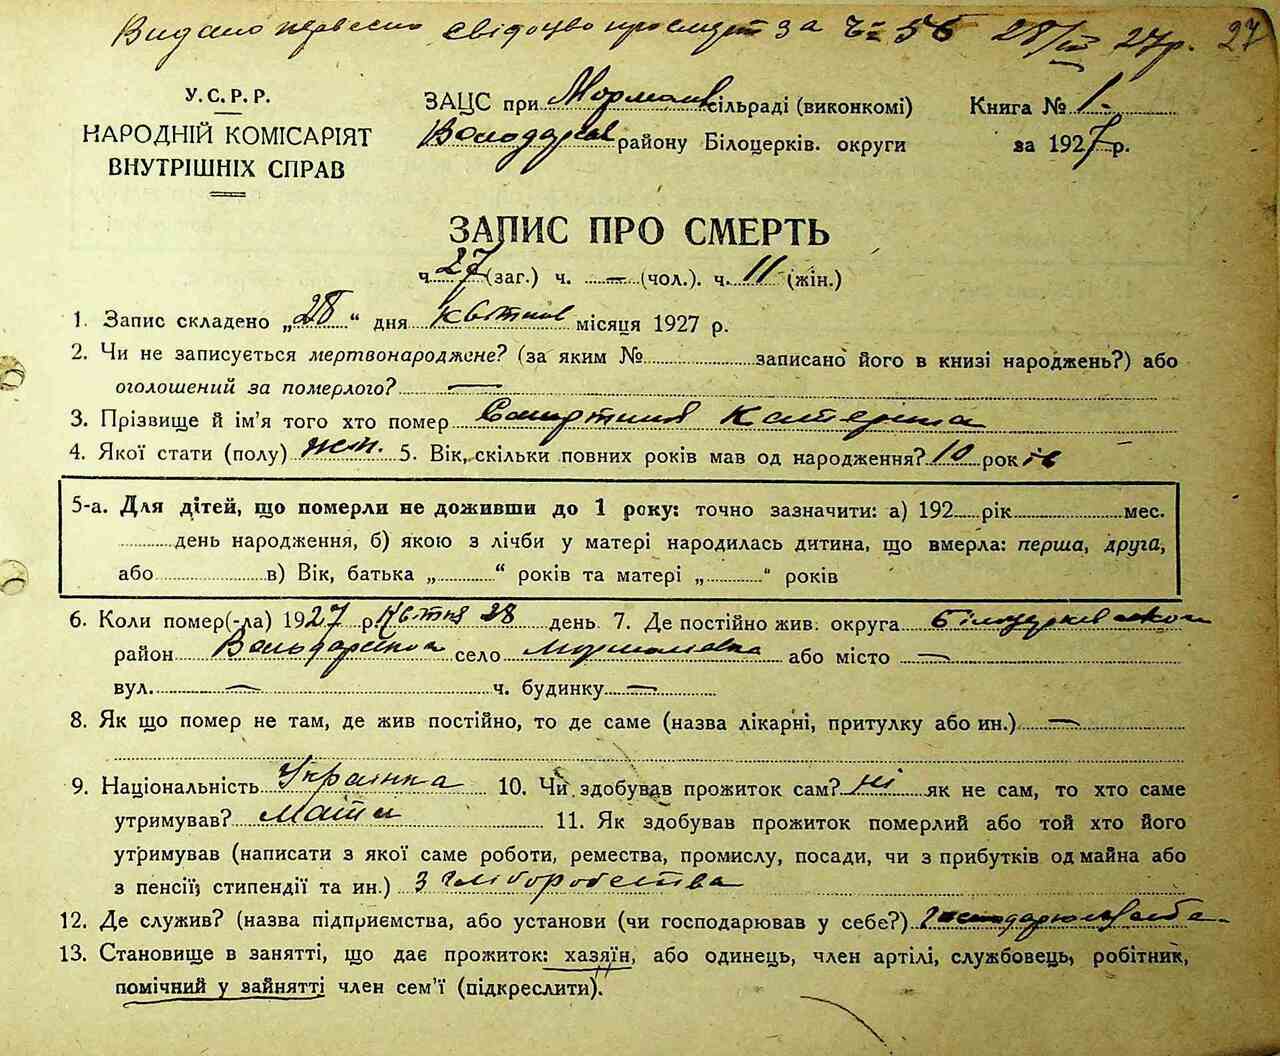 Видано первесно свідоцво про смерт за ч= 56 28/IV 27р. 27
У.С.Р.Р.
НАРОДНІЙ КОМІСАРІЯТ
ВНУТРІШНІХ СПРАВ
ЗАЦС при сільраді (виконкомі)
району Білоцерків. округи
Книга № 1.
за 1927 р.
ЗАПИС ПРО СМЕРТЬ
ч. 27 (заг.) ч. — (чол.). ч. 11 (жін.)
1. Запис складено „28“ дня квітня місяця 1927 р.
2. Чи не записується мертвонароджене? (за яким № записано його в книзі народжень?) або
оголошений за померлого? —
3. Прізвище й ім'я того хто помер Катеріна
4. Якої стати (полу) жін. 5. Вік, скільки повних років мав од народження? 10 років
5-а. Для дітей, що померли не доживши до 1 року: точно зазначити: а) 192 рік мес.
день народження, б) якою з лічби у матері народилась дитина, що вмерла: перша, друга,
або в) Вік, батька „ “ років та матері „ “ років
6. Коли помер(-ла) 1927 р. Квітня 28 день 7. Де постійно жив: округа Білоцерківська
район Володарський село або місто —
вул. — ч. будинку —
8. Як що помер не там, де жив постійно, то де саме (назва лікарні, притулку або ин.) —
9. Національність Українка 10. Чи здобував прожиток сам? ні як не сам, то хто саме
утримував? Мати 11. Як здобував прожиток померлий або той хто його
утримував (написати з якої саме роботи, ремества, промислу, посади, чи з прибутків од майна або
з пенсії, стипендії та ин.) З хліборобства
12. Де служив? (назва підприємства, або установи (чи господарював у себе?)
13. Становище в занятті, що дає прожиток: хазяїн, або одинець, член артілі, службовець, робітник,
помічний у зайнятті член сем'ї (підкреслити).